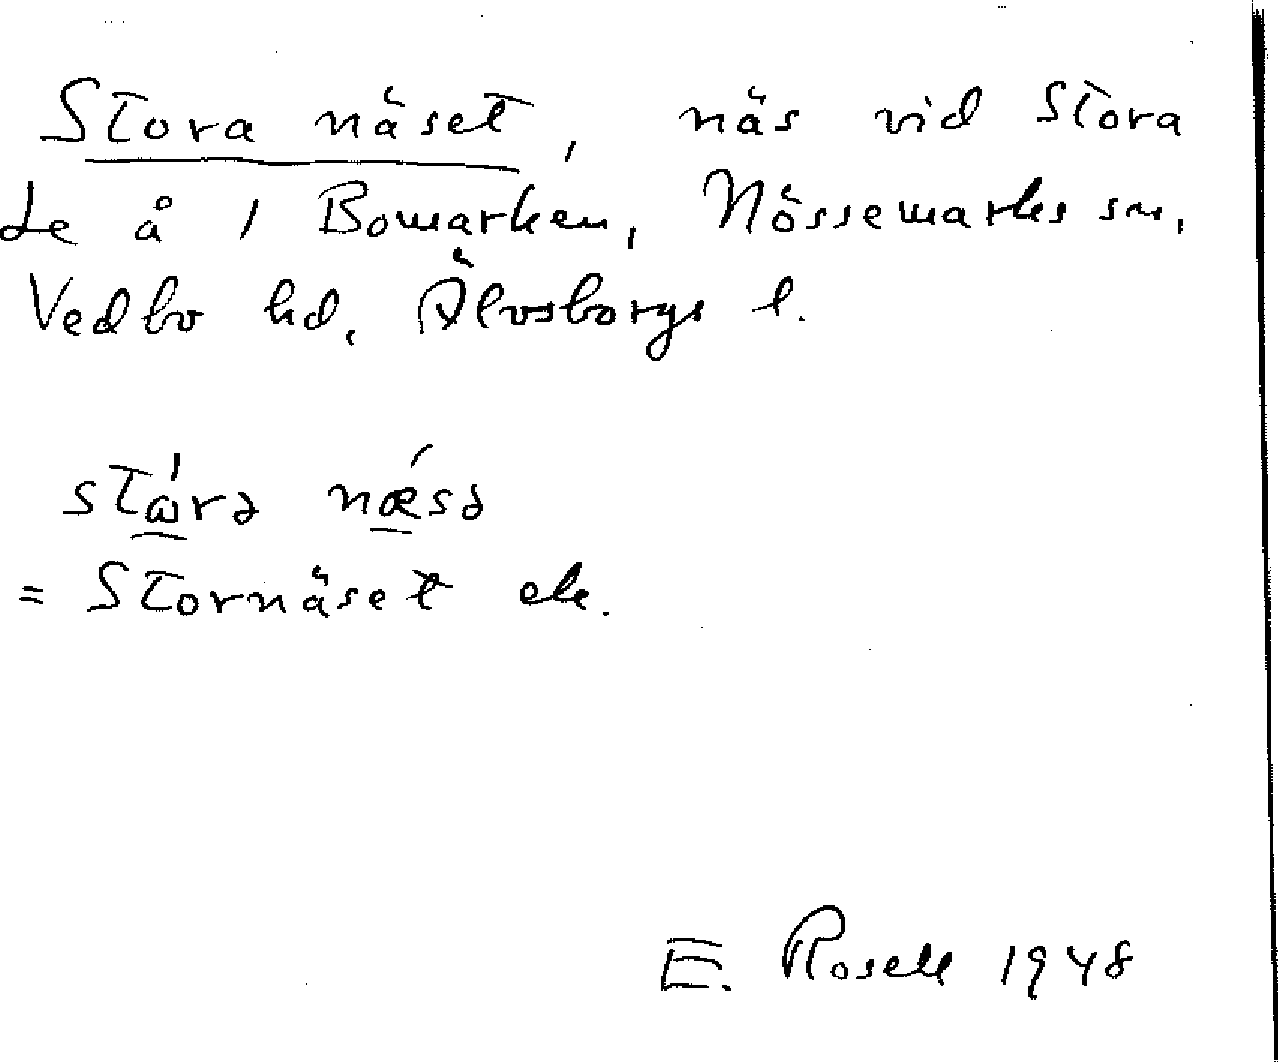 Stora näset, näs vid Stora
Le å 1 Bomarken, Nössemarks sn,
Vedbo hd, Älvsborgs l.
stɷ́rə nǽsə
= Stornäset ek.
E. Rosell 1948